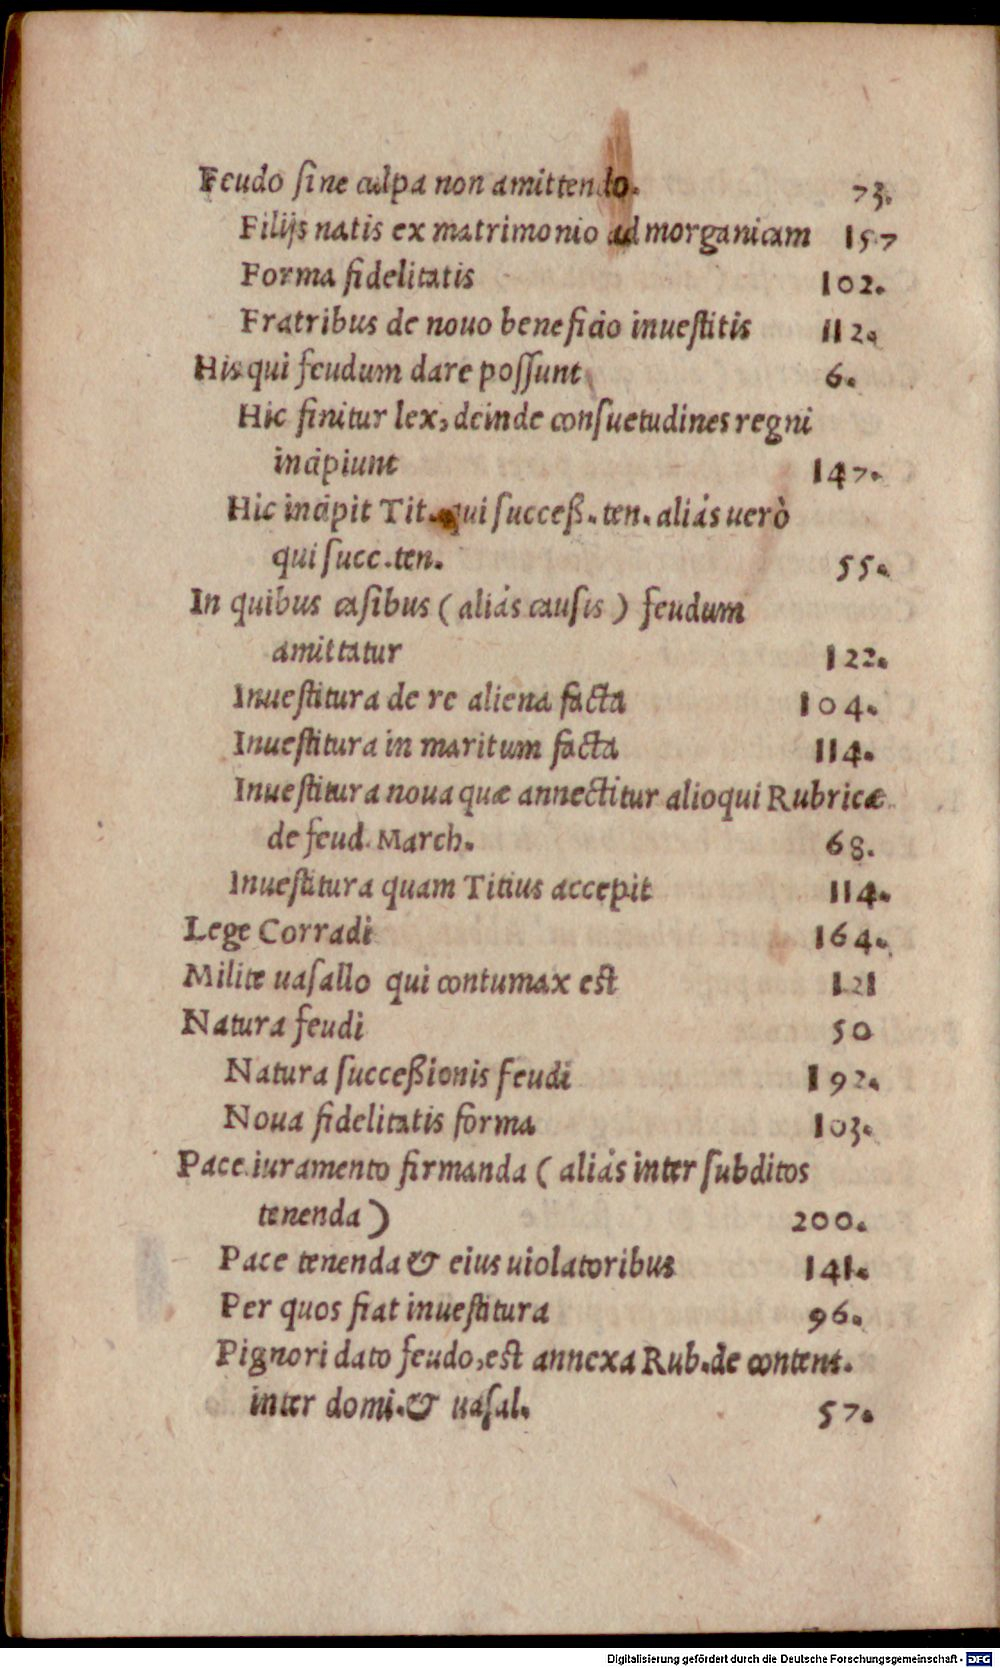 Feudo ſine culpa non amittendo. 73.
Filijs natis ex matrimonio ad morganicam 157
Forma fidelitatis 102.
Fratribus de nouo beneficio inueſtitis 112.
His qui feudum dare poſſunt 6.
Hic finitur lex, deinde conſuetudines regni
incipiunt 147.
Hic incipit Tit. qui succeß. ten. aliás uerò
qui ſucc. ten. 55.
In quibus caſibus (aliás cauſis) feudum
amittatur 122.
Inueſtitura de re aliena facta 104.
Inueſtitura in maritum facta 114.
Inueſtitura noua quæ annectitur alioqui Rubricæ
de feud. March. 68.
Inueſtitura quam Titius accepit 114.
Lege Corradi 164.
Milite uaſallo qui contumax est 121
Natura feudi 50
Natura ſucceßionis feudi 192.
Noua fidelitatis forma 103.
Pace iuramento firmanda (aliás inter ſubditos
tenenda) 200.
Pace tenenda & eius uiolatoribus 141.
Per quos fiat inueſtitura 96.
Pignori dato feudo, est annexa Rub. de content.
inter domi. & uaſal. 57.
Digitalisierung gefördert durch die Deutsche Forschungsgemeinschaft - DFG